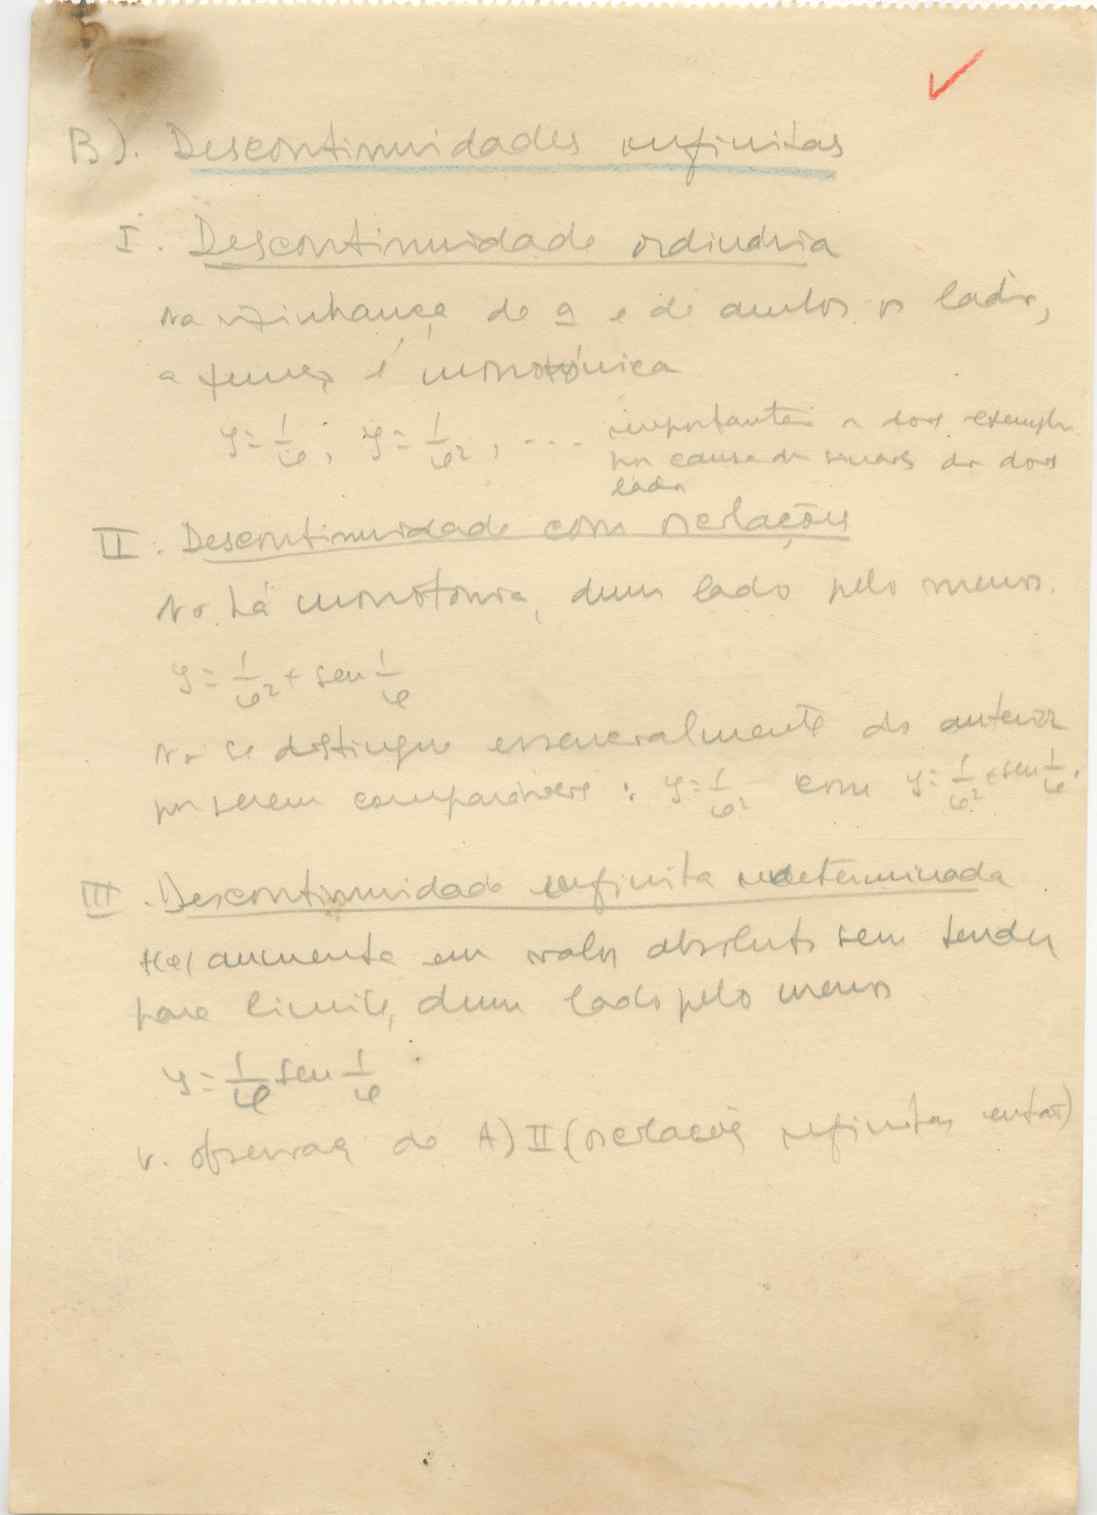 B). Descontinuidades infinitas
I. Descontinuidade ordinária
Na vizinhança de a e de ambos os lados,
a função é monotónica
y = 1/φ, y = 1/φ², ... importantes os dois exemplos
por causa dos sinais dos dois
lados
II. Descontinuidade com oscilações
Não há monotonia, dum lado pelo menos.
y = 1/φ² + sen 1/φ
Não se distingue essencialmente da anterior
por serem comparáveis: y = 1/φ² com y = 1/φ² + sen 1/φ.
III. Descontinuidade infinita indeterminada
f(x) aumenta em valor absoluto sem tender
para limite, dum lado pelo menos
y = 1/φ sen 1/φ
v. observação de A) II (oscilações infinitas então)